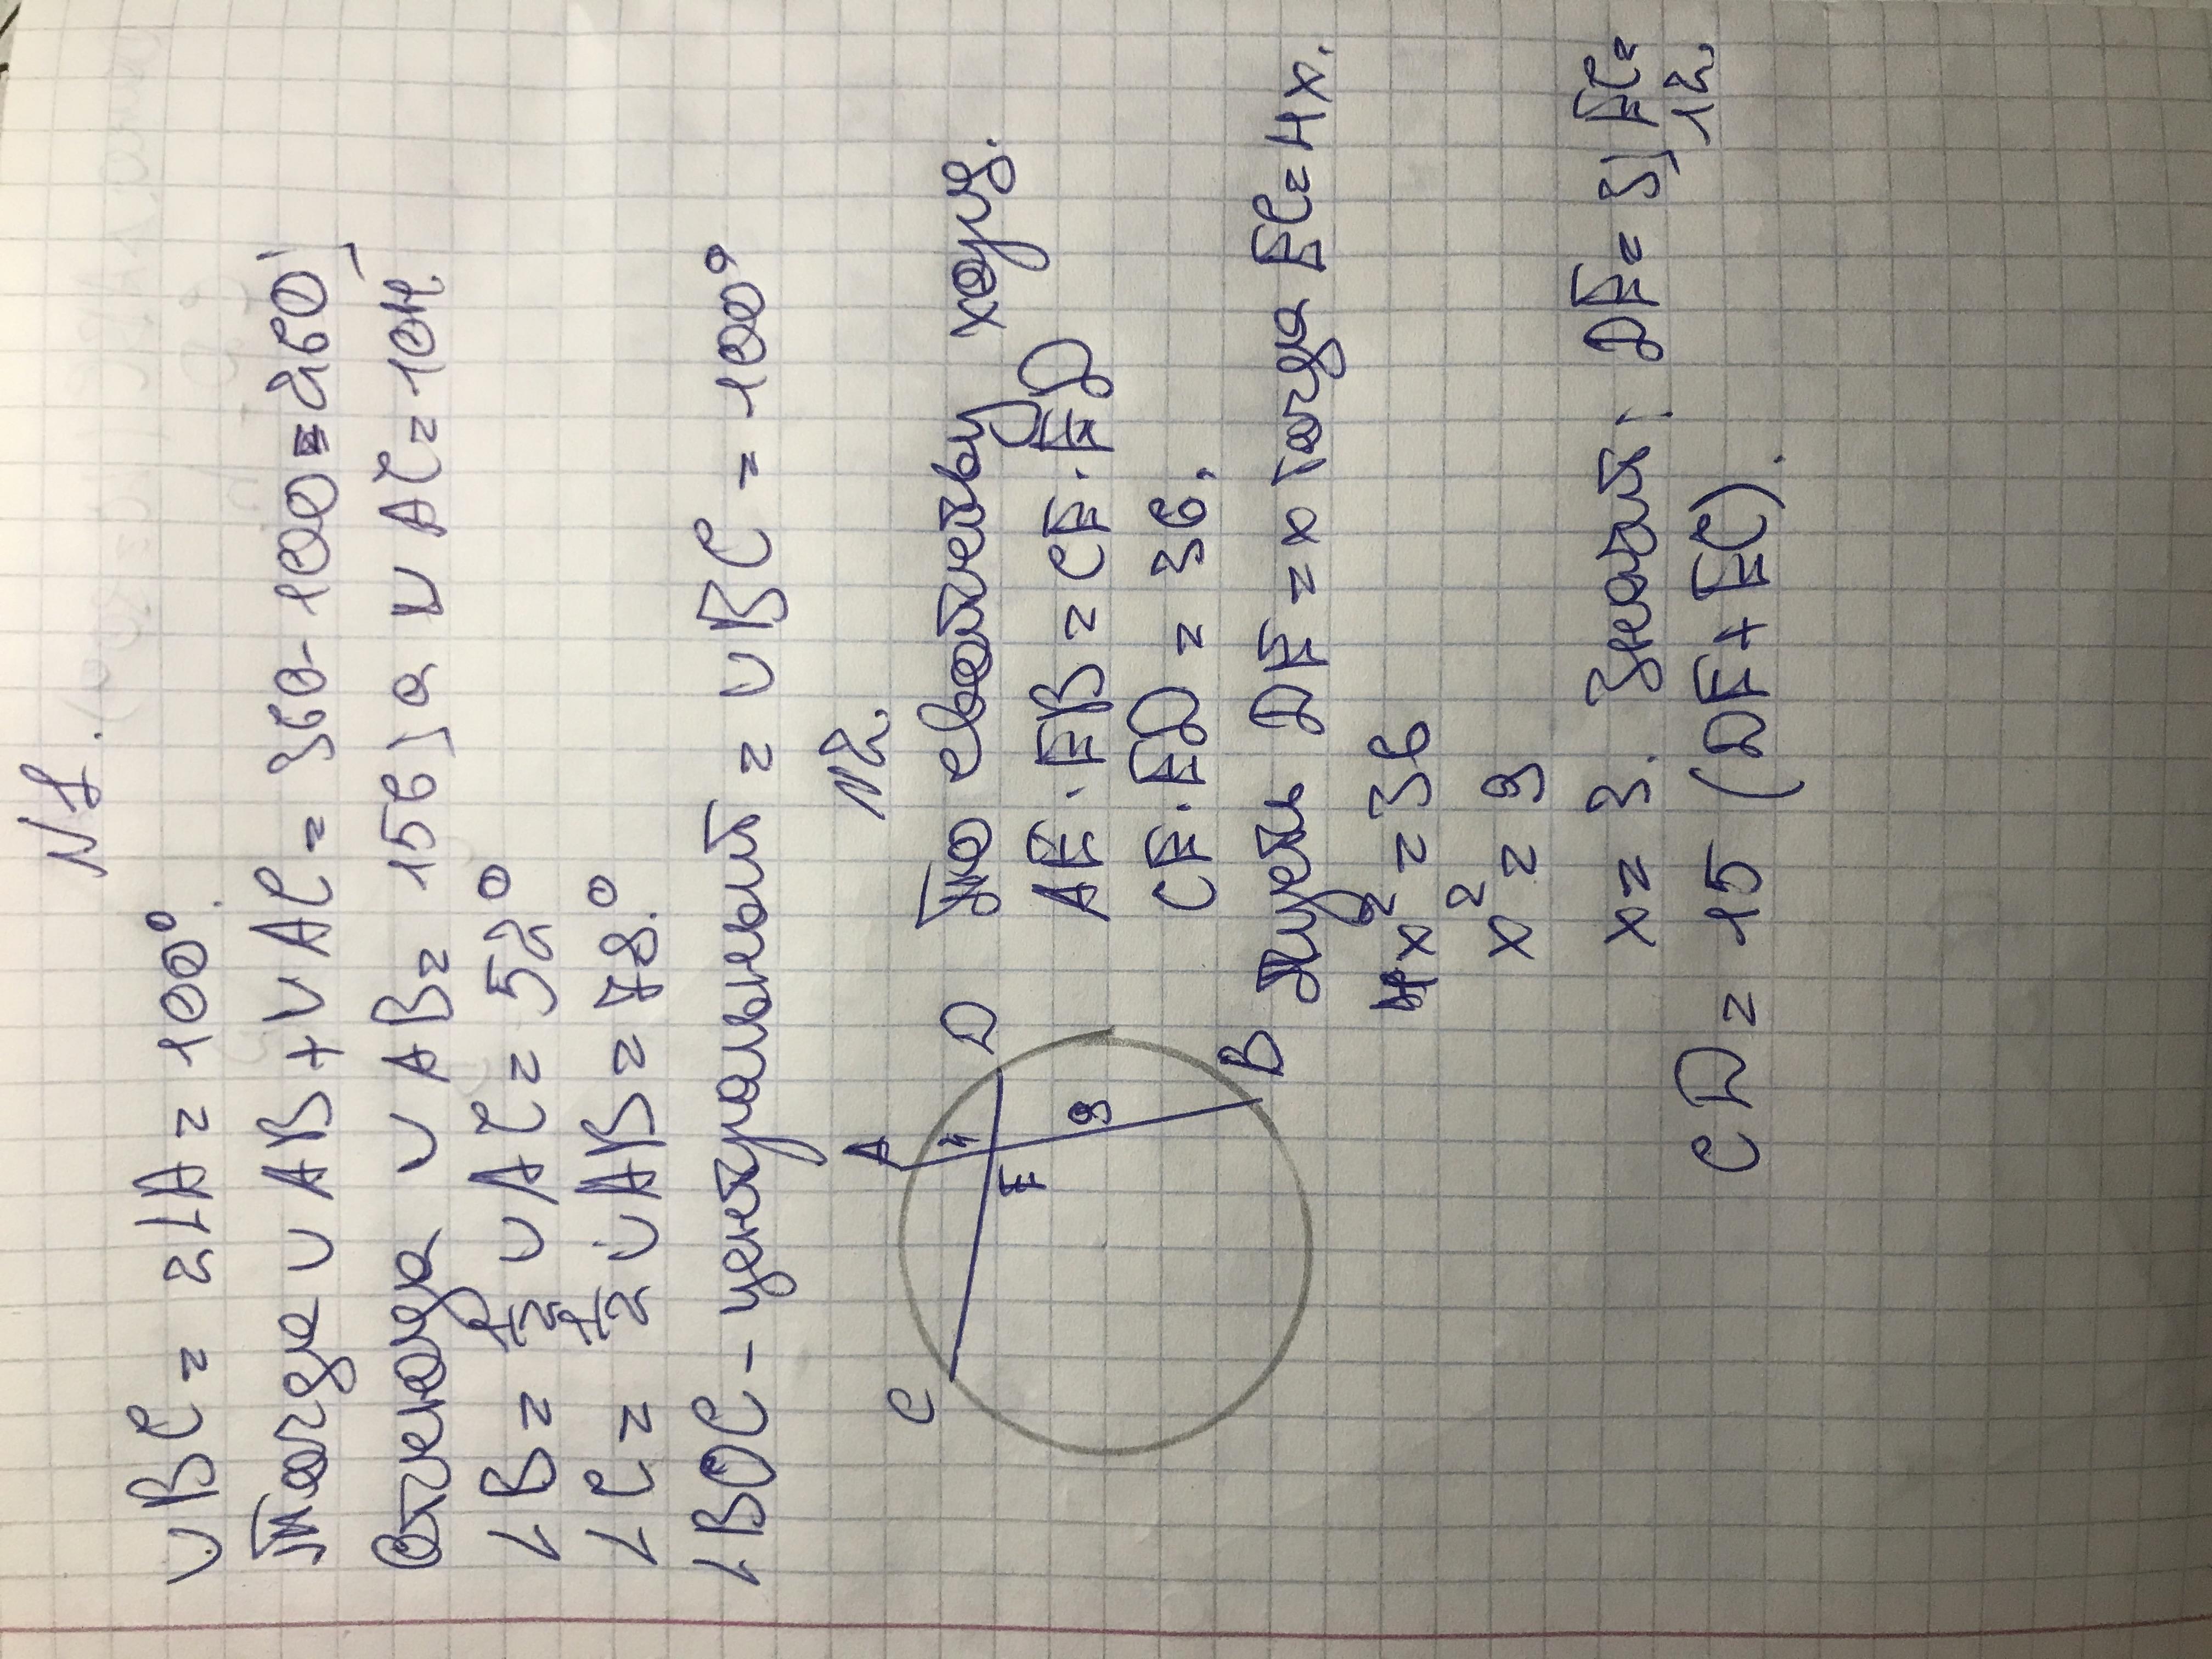 N1.
∪BC = 2∠A = 100°.
Тогда ∪AB + ∪AC = 360-100=260,
Отсюда ∪AB= 156, а ∪AC=104.
∠B= 1/2 ∪AC= 52°
∠C= 1/2 ∪AB= 78°.
∠BOC - центральный = ∪BC = 100°
N2.
По свойству хорд.
AF · FB = CF · FD
CF · FD = 36.
Пусть DF = x тогда FC=4x.
4x² = 36
x² = 9
x = 3. Значит: DF= 3, FC= 12.
CD= 15 (DF+FC).
A
C
D
4
F
9
B